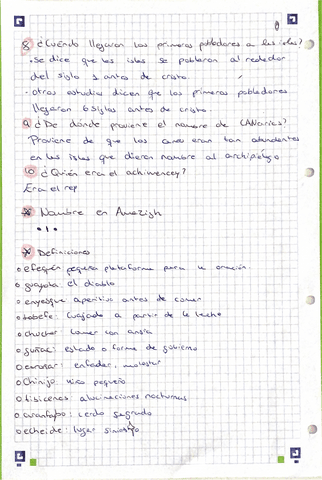 8 ¿Cuándo llegaron los primeros pobladores a las islas?
• Se dice que las islas se poblaron al rededor
del siglo 1 antes de cristo
- otros estudios dicen que los primeros pobladores
llegaron 6 siglos antes de cristo
9 ¿De dónde proviene el nombre de Canarias?
Proviene de que los canes eran tan abundentes
en las islas que dieron nombre al archipiélgo
10 ¿Quién era el achimencey?
Era el rep
* Nombre en Amazigh
* Definiciones
o efequén pequeña plataforma para la oración.
o guayota: el diablo
o enyesque aperitivo antes de comer
o tabefe: Cuajado a partir de la leche
o chuchar: comer con ansia
o guñac: estado o forma de gobierno
enfadar, molestar
o Chinijo: niño pequeño
o tibicenas alucinaciones nocturnas
cerdo sagrado
o echeide: lugar siniestro